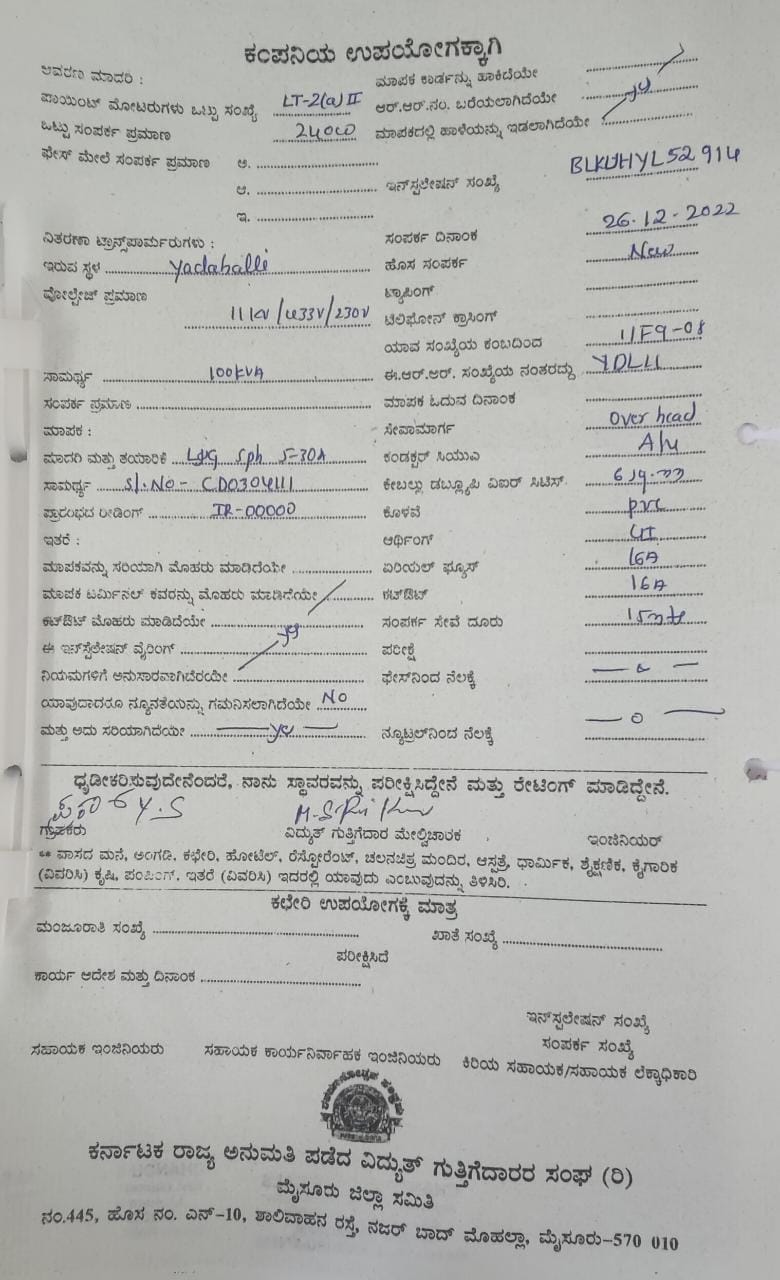 ಕಂಪನಿಯ ಉಪಯೋಗಕ್ಕಾಗಿ
ಆವರಣ ಮಾದರಿ : ಮಾಪಕ ಕಾರ್ಡನ್ನು ಹಾಕಿದೆಯೇ
ಪಾಯಿಂಟ್ ಮೋಟರುಗಳು ಒಟ್ಟು ಸಂಖ್ಯೆ LT-2(a) II ಆರ್.ಆರ್.ನಂ. ಬರೆಯಲಾಗಿದೆಯೇ
ಒಟ್ಟು ಸಂಪರ್ಕ ಪ್ರಮಾಣ 2400 ಮಾಪಕದಲ್ಲಿ ಹಾಳೆಯನ್ನು ಇಡಲಾಗಿದೆಯೇ yes
ಫೇಸ್ ಮೇಲೆ ಸಂಪರ್ಕ ಪ್ರಮಾಣ ಅ.
ಆ. ಇನ್‌ಸ್ಪಲೇಷನ್ ಸಂಖ್ಯೆ BLKUHYL52914
ಇ.
ವಿತರಣಾ ಟ್ರಾನ್ಸ್‌ಪಾರ್ಮರುಗಳು : ಸಂಪರ್ಕ ದಿನಾಂಕ 26.12.2022
ಇರುವ ಸ್ಥಳ Yadahalli ಹೊಸ ಸಂಪರ್ಕ New
ವೋಲ್ಟೇಜ್ ಪ್ರಮಾಣ 11kv/433v/230v ಟ್ಯಾಪಿಂಗ್
ಟೆಲಿಫೋನ್ ಕ್ರಾಸಿಂಗ್
ಯಾವ ಸಂಖ್ಯೆಯ ಕಂಬದಿಂದ 11F9-08
ಸಾಮರ್ಥ್ಯ 100KVA ಈ.ಆರ್.ಆರ್. ಸಂಖ್ಯೆಯ ನಂತರದ್ದು YDL11
ಸಂಪರ್ಕ ಪ್ರಮಾಣ ಮಾಪಕ ಓದುವ ದಿನಾಂಕ
ಮಾಪಕ : ಸೇವಾಮಾರ್ಗ Over head
ಮಾದರಿ ಮತ್ತು ತಯಾರಿಕೆ L&G Sph 5-30A ಕಂಡಕ್ಟರ್ ಸಿಯುಎ A/u
ಸಾಮರ್ಥ್ಯ Sl.No- CD0304111 ಕೇಬಲ್ಲು ಡಬ್ಲ್ಯೂಪಿ ವಿಐರ್ ಸಿಟಿಸ್
ಪ್ರಾರಂಭದ ರೀಡಿಂಗ್ IR-00000 ಕೊಳವೆ pvc
ಇತರೆ : ಆರ್ಥಿಂಗ್ GI
ಮಾಪಕವನ್ನು ಸರಿಯಾಗಿ ಮೊಹರು ಮಾಡಿದೆಯೇ ಏರಿಯಲ್ ಫ್ಯೂಸ್ 16A
ಮಾಪಕ ಟರ್ಮಿನಲ್ ಕವರನ್ನು ಮೊಹರು ಮಾಡಿದೆಯೇ ಕಟ್‌ಔಟ್ 16A
ಕಟ್‌ಔಟ್ ಮೊಹರು ಮಾಡಿದೆಯೇ ಸಂಪರ್ಕ ಸೇವೆ ದೂರು 15mtr
ಈ ಇನ್‌ಸ್ಟೆಲೇಷನ್ ವೈರಿಂಗ್ yes ಪರೀಕ್ಷೆ
ನಿಯಮಗಳಿಗೆ ಅನುಸಾರವಾಗಿಬೆರಯೇ ಫೇಸ್‌ನಿಂದ ನೆಲಕ್ಕೆ — 0 —
ಯಾವುದಾದರೂ ನ್ಯೂನತೆಯನ್ನು ಗಮನಿಸಲಾಗಿದೆಯೇ NO
ಮತ್ತು ಅದು ಸರಿಯಾಗಿದೆಯೇ — yes — ನ್ಯೂಟ್ರಲ್‌ನಿಂದ ನೆಲಕ್ಕೆ — 0 —
ಧೃಡೀಕರಿಸುವುದೇನೆಂದರೆ, ನಾನು ಸ್ಥಾವರವನ್ನು ಪರೀಕ್ಷಿಸಿದ್ದೇನೆ ಮತ್ತು ರೇಟಿಂಗ್ ಮಾಡಿದ್ದೇನೆ.
ಗ್ರಾಹಕರು ವಿದ್ಯುತ್ ಗುತ್ತಿಗೆದಾರ ಮೇಲ್ವಿಚಾರಕ ಇಂಜಿನಿಯರ್
** ವಾಸದ ಮನೆ, ಅಂಗಡಿ, ಕಛೇರಿ, ಹೋಟೆಲ್, ರೆಸ್ಟೋರೆಂಟ್, ಚಲನಚಿತ್ರ ಮಂದಿರ, ಆಸ್ಪತ್ರೆ, ಧಾರ್ಮಿಕ, ಶೈಕ್ಷಣಿಕ, ಕೈಗಾರಿಕ
(ವಿವರಿಸಿ) ಕೃಷಿ, ಪಂಪಿಂಗ್, ಇತರೆ (ವಿವರಿಸಿ) ಇದರಲ್ಲಿ ಯಾವುದು ಎಂಬುವುದನ್ನು ತಿಳಿಸಿರಿ.
ಕಛೇರಿ ಉಪಯೋಗಕ್ಕೆ ಮಾತ್ರ
ಮಂಜೂರಾತಿ ಸಂಖ್ಯೆ ಖಾತೆ ಸಂಖ್ಯೆ
ಪರೀಕ್ಷಿಸಿದೆ
ಕಾರ್ಯ ಆದೇಶ ಮತ್ತು ದಿನಾಂಕ
ಇನ್‌ಸ್ಪಲೇಷನ್ ಸಂಖ್ಯೆ
ಸಂಪರ್ಕ ಸಂಖ್ಯೆ
ಸಹಾಯಕ ಇಂಜಿನಿಯರು ಸಹಾಯಕ ಕಾರ್ಯನಿರ್ವಾಹಕ ಇಂಜಿನಿಯರು ಕಿರಿಯ ಸಹಾಯಕ/ಸಹಾಯಕ ಲೆಕ್ಕಾಧಿಕಾರಿ
ಕರ್ನಾಟಕ ರಾಜ್ಯ ಅನುಮತಿ ಪಡೆದ ವಿದ್ಯುತ್ ಗುತ್ತಿಗೆದಾರರ ಸಂಘ (ರಿ)
ಮೈಸೂರು ಜಿಲ್ಲಾ ಸಮಿತಿ
ನಂ.445, ಹೊಸ ನಂ. ಎನ್-10, ಶಾಲಿವಾಹನ ರಸ್ತೆ, ನಜರ್ ಬಾದ್ ಮೊಹಲ್ಲಾ, ಮೈಸೂರು-570 010